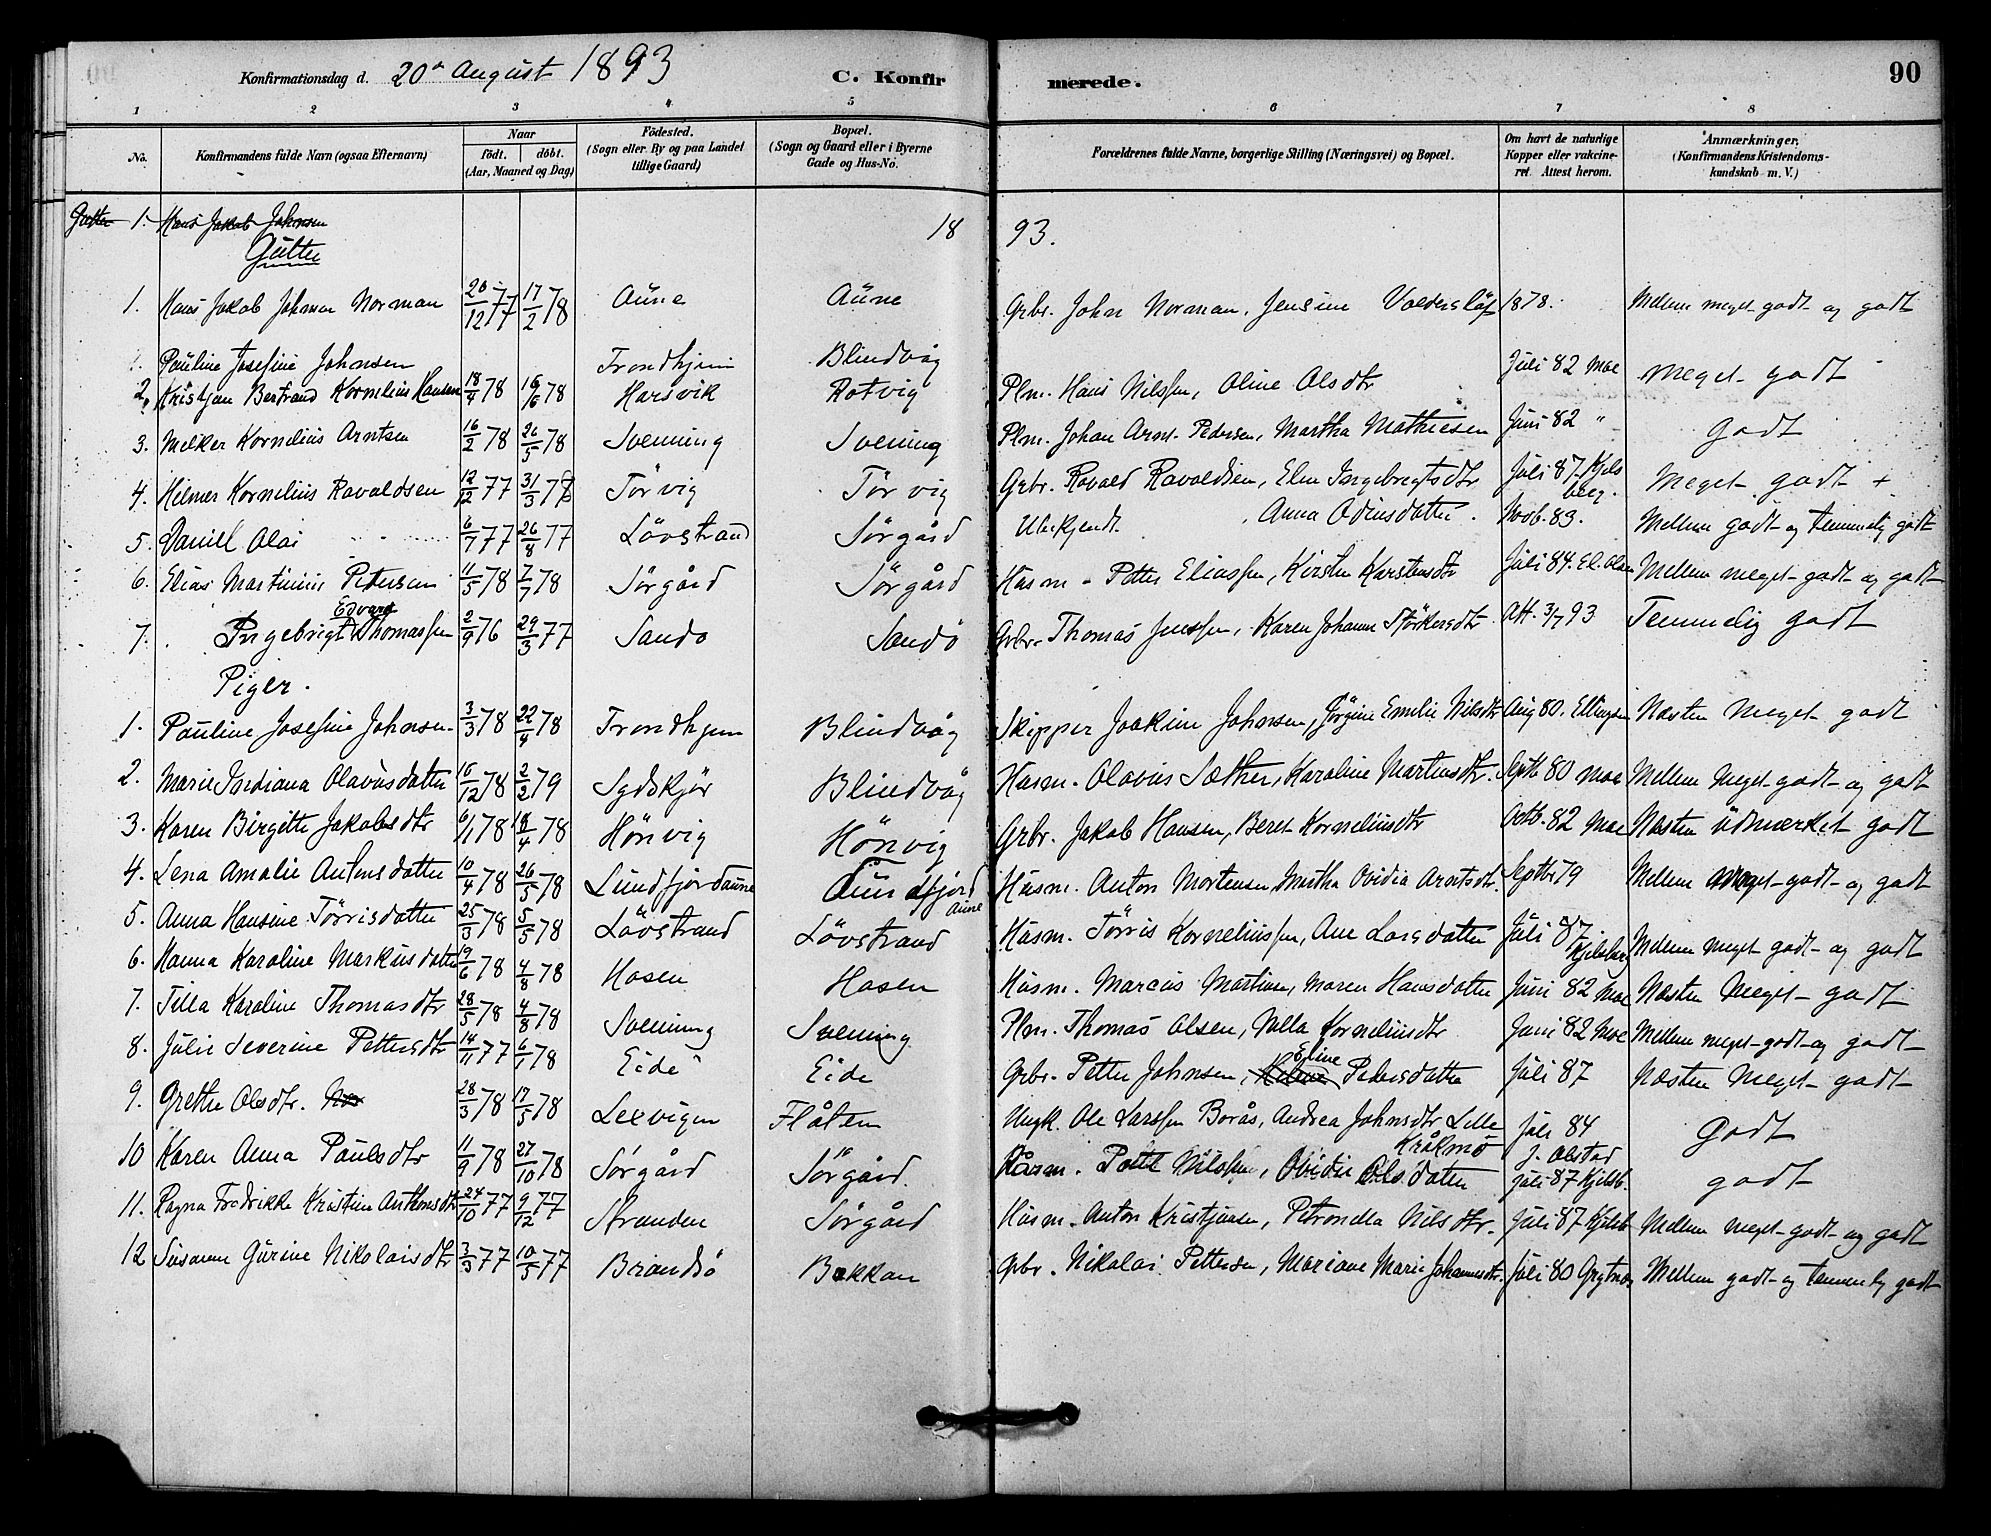 Konfirmationsdag d. 20de August 1893 C. Konfir merede. 90
1 2 3 4 5 6 7 8
No. Konfirmandens fulde Navn (ogsaa Efternavn) Naar födt. döbt. (Aar, Maaned og Dag) Födested. (Sogn eller By og paa Landet tillige Gaard) Bopæl. (Sogn og Gaard eller i Byerne Gade og Hus-No. Forældrenes fulde Navne, borgerlige Stilling (Næringsvei) og Bopæl. Om havt de naturlige Kopper eller vakcineret. Attest herom. Anmærkninger. (Konfirmandens Kristendomskundskab m. V.)
1. Hans Jakob Johnsen 18 93.
Gutter
1. Hans Jakob Johnsen Norman 20/12 77 17/2 78 Aune Aune Grbr. John Norman, Jensine Valdersløf 1878. Mellem meget godt og godt
1. Pauline Josefine Johnsen Trondhjem Blindvåg
2. Kristjan Bertrand Kornelius Hansen 18/4 78 16/6 78 Harsvik Rotvig Plm. Hans Nilssen, Oline Olsdtr Juli 82 Moe Meget godt
3. Melker Kornelius Arntsen 16/2 78 26/5 78 Svenning Svening Plm. Johan Arnt Pedersen, Martha Mathiesen Juni 82 " Godt
4. Hilmer Kornelius Ravaldsen 12/12 77 31/3 78 Tørvig Tørvig Grbr. Ravald Ravaldsen, Elen Ingebregtsdtr Juli 87 Kjelsberg. Meget godt +
5. Daniel Olai 6/7 77 26/8 77 Lövstrand Sørgård Ubekjendt. Anna Odinsdatter. Novb. 83. Mellem godt og temmelig godt
6. Elias Martinius Petersen 11/5 78 7/7 78 Sørgård Sørgård Husm. Petter Eliassen, Kirsten Karstensdtr Juli 84. El. Olsen Mellem meget godt og godt
7. Ingebrigt Edvard Thomassen 2/9 76 29/3 77 Sandø Sandø Grbr. Thomas Jenssen, Karen Johanna Størkersdtr Att. 3/7 93 Temmelig godt
Piger.
1. Pauline Josefine Johnsen 3/3 78 22/4 78 Trondhjem Blindvåg Skipper Joakim Johnsen, Jörgine Emilie Nilsdtr Aug 80. Ellingsen Næsten Meget godt
2. Marie Indiana Olavusdatter 16/12 78 2/2 79 Sydskjør Blindvåg Husm. Olavus Sæther, Karoline Martinsdtr. Septb 80 Moe Mellem Meget godt og godt
3. Karen Birgitte Jakobsdtr 6/1 78 18/4 78 Hönvig Hönvig Grbr. Jakob Hansen, Beret Korneliusdtr Octb. 82 Moe Næsten udmærket godt
4. Lena Amalie Antonsdatter 10/4 78 26/5 78 Sundfjordaune Sundfjord aune Husm. Anton Mortensen, Martha Ovidia Arntsdtr. Septbr 79 Mellem meget godt og godt
5. Anna Hansine Tørrisdatter 25/3 78 5/5 78 Lövstrand Lövstrand Husm. Törris Korneliussen, Ane Larsdatter Juli 87 Kjelsberg Mellem meget godt og godt
6. Hanna Karoline Markusdatter 9/6 78 4/8 78 Hosen Hosen Husm. Marcus Martinsen, Maren Hansdatter Juni 82 Moe Næsten Meget godt
7. Tilla Karoline Thomasdtr 28/5 78 4/8 78 Svenning Svening Plm. Thomas Olsen, Valla Korneliusdtr Juni 82 Moe Mellem meget godt og godt
8. Julie Severine Pettersdtr 14/11 77 6/1 78 Eide Eide Grbr. Petter Johnsen, Eline Pedersdatter Juli 87 Næsten Meget godt
9. Grethe Olsdtr. 28/3 78 17/5 78 Lexvigen Flåten Ungk. Ole Larssen Borås, Andrea Johnsdtr Lille Kråkmö Juli 84 J. Olstad Godt
10 Karen Anna Paulsdtr 11/9 78 27/10 78 Sørgård Sørgård. Husm. Petter Nilssen, Ovidie Olsdatter Juli 87 Kjelsb. godt
11. Ragna Fredrikke Kristine Anthonsdtr 24/10 77 9/12 77 Stranden Sørgård Husm. Anton Kristjansen, Petronella Nilsdtr. Juli 87 Kjelsb Mellem meget godt og godt
12 Susanna Gurine Nikolaisdtr 3/3 77 10/5 77 Brandsö Bakkan Grbr. Nikolai Pettersen, Mariane Marie Johannesdtr. Juli 80 Grytnæs Mellem godt og temmelig godt